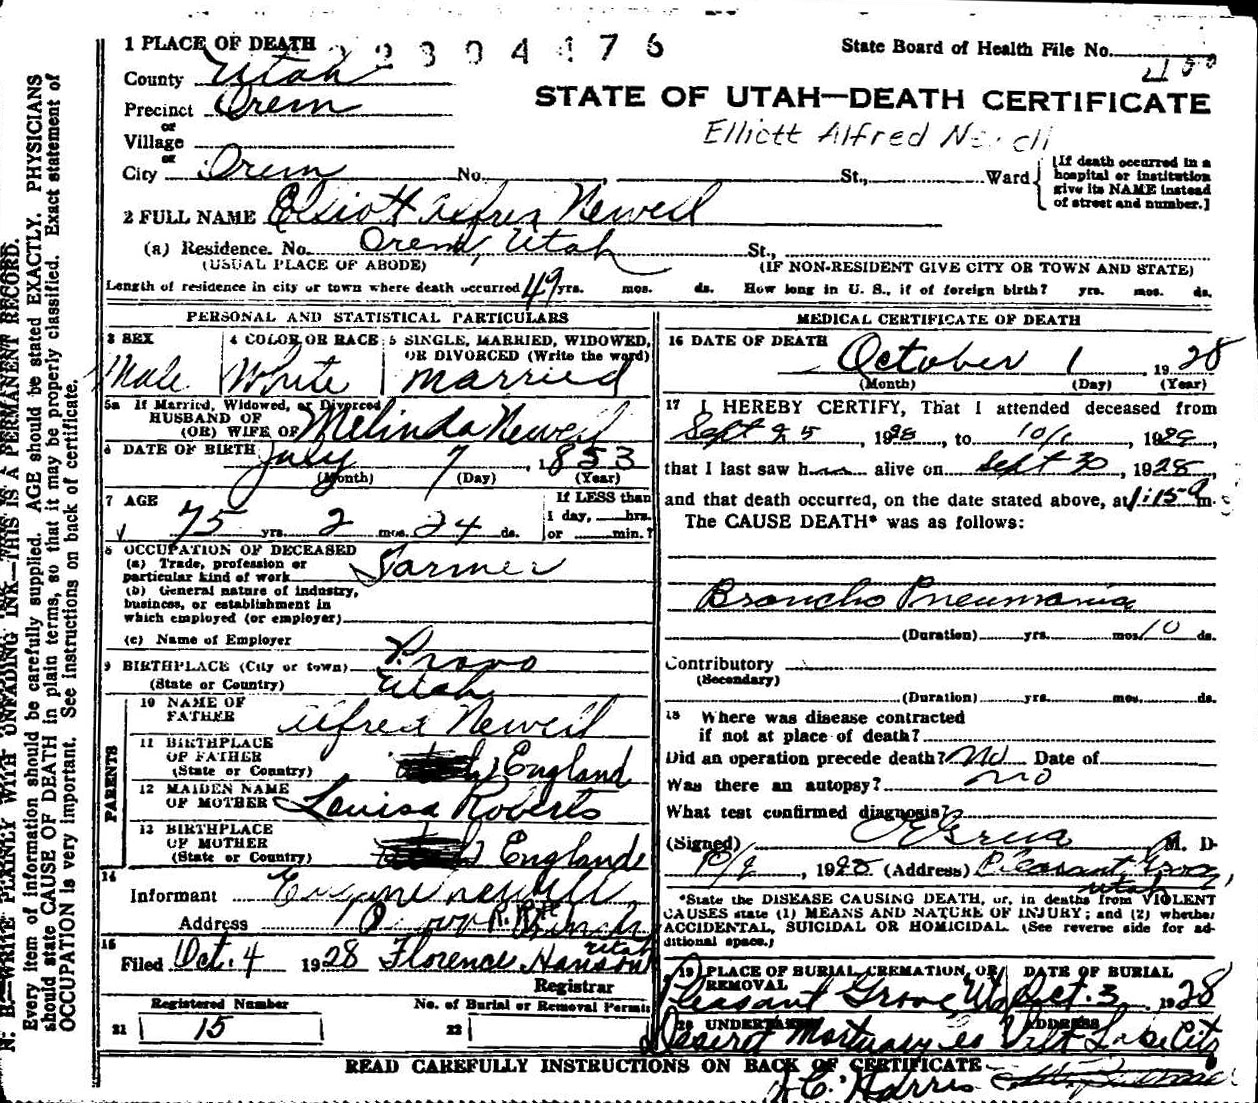 1 PLACE OF DEATH
2 2 3 0 4 4 7 6
State Board of Health File No.
County Utah
STATE OF UTAH—DEATH CERTIFICATE
Precinct Orem
Elliott Alfred
or
Village
or
City Orem No. St., Ward
[If death occurred in a
hospital or institution
give its NAME instead
of street and number.]
2 FULL NAME Elliott Alfred Newell
(a) Residence. No. Orem, Utah St.,
(USUAL PLACE OF ABODE) (IF NON-RESIDENT GIVE CITY OR TOWN AND STATE)
Length of residence in city or town where death occurred 49 yrs. mos. ds. How long in U. S., if of foreign birth? yrs. mos. ds.
PERSONAL AND STATISTICAL PARTICULARS
3 SEX 4 COLOR OR RACE 5 SINGLE, MARRIED, WIDOWED,
OR DIVORCED (Write the word)
Male White married
5a If Married, Widowed, or Divorced
HUSBAND OF
(OR) WIFE OF Melinda Newell
6 DATE OF BIRTH July 7, 1853
(Month) (Day) (Year)
7 AGE If LESS than
1 day, hrs.
75 yrs. 2 mos. 24 ds. or min.?
8 OCCUPATION OF DECEASED
(a) Trade, profession or
particular kind of work Farmer
(b) General nature of industry,
business, or establishment in
which employed (or employer)
(c) Name of Employer
9 BIRTHPLACE (City or town) Provo
(State or Country) Utah
PARENTS
10 NAME OF
FATHER Alfred Newell
11 BIRTHPLACE
OF FATHER
(State or Country) England
12 MAIDEN NAME
OF MOTHER Louisa Roberts
13 BIRTHPLACE
OF MOTHER
(State or Country) England
14
Informant Newell
Address Provo
Utah
15
Filed Oct. 4 1928 Florence Hanson
Registrar
Registered Number No. of Burial or Removal Permit
21 15 22
MEDICAL CERTIFICATE OF DEATH
16 DATE OF DEATH
October 1 1928
(Month) (Day) (Year)
17 I HEREBY CERTIFY, That I attended deceased from
Sept 25, 1928, to 10/1, 1928,
that I last saw h alive on Sept 30, 1928,
and that death occurred, on the date stated above, at 1:15 a m.
The CAUSE DEATH* was as follows:
Broncho Pneumonia
(Duration) yrs. mos. 10 ds.
Contributory
(Secondary)
(Duration) yrs. mos. ds.
18 Where was disease contracted
if not at place of death?
Did an operation precede death? No Date of
Was there an autopsy? no
What test confirmed diagnosis?
(Signed) M. D.
1928 (Address) Pleasant Grove,
Utah
*State the DISEASE CAUSING DEATH, or, in deaths from VIOLENT
CAUSES state (1) MEANS AND NATURE OF INJURY; and (2) whether
ACCIDENTAL, SUICIDAL OR HOMICIDAL. (See reverse side for ad-
ditional space.)
19 PLACE OF BURIAL CREMATION, OR
REMOVAL DATE OF BURIAL
Pleasant Grove, Uta Oct. 3 1928
20 UNDERTAKER ADDRESS
Deseret Mortuary Co Salt Lake City
READ CAREFULLY INSTRUCTIONS ON BACK OF CERTIFICATE
Harris
N. B.—WRITE PLAINLY WITH UNFADING INK—THIS IS A PERMANENT RECORD.
Every item of information should be carefully supplied. AGE should be stated EXACTLY. PHYSICIANS
should state CAUSE OF DEATH in plain terms, so that it may be properly classified. Exact statement of
OCCUPATION is very important. See instructions on back of certificate.